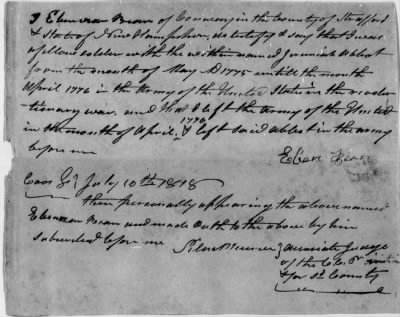 I Ebenezer Bean of Conway in the County of Strafford
& State of New Hampshire, do testify & say that I was
a fellow soldier with the within named Jeremiah Abbot
from the month of May AD 1775 untill the month
April 1776 in the Army of the United States in the revolu
tionary war, and that I left the Army of the United
in the month of April, 1776 & left said Abbot in the army
before me
Eben Bean
Coos Ss July 10th 1818
then personally appearing the above named
Ebenezer Bean and made Oath to the above by him
subscribed before me
associate Justice
of the C.C.P.
& for Sd County